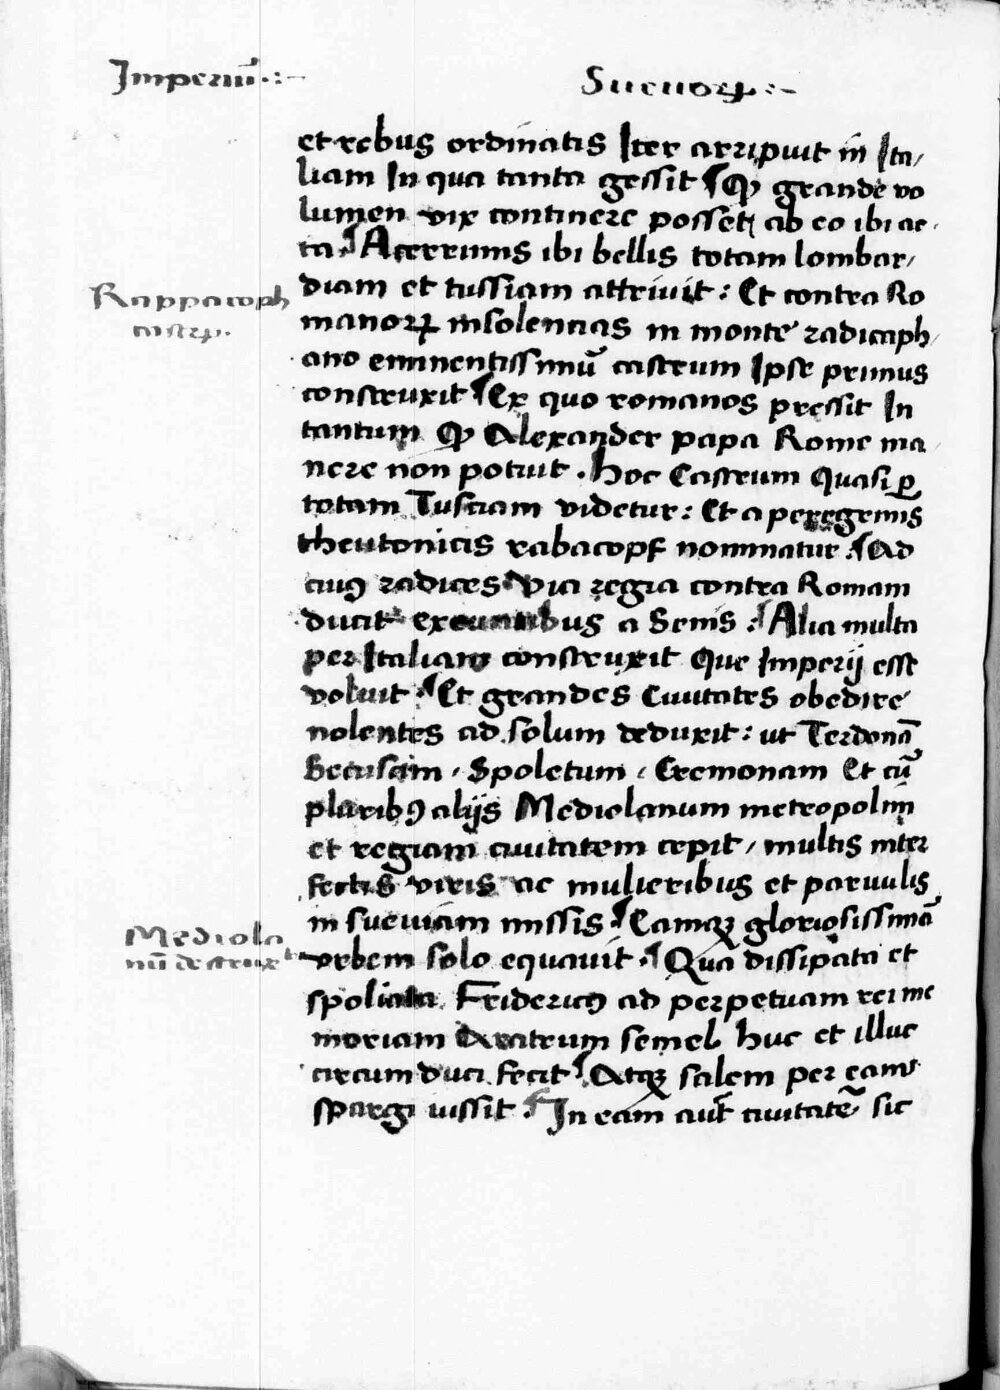 Imperiū .:-
Sueuoꝝ :-
et rebus ordinatis Iter arripuit in Ita/
liam In qua tanta gessit ¶ Qꝫ grande vo
lumen vix continere possetꝫ ab eo ibi ac
ta. ¶ Acerrimis ibi bellis totam lombar/
diam et tussiam attriuit : Et contra Ro
manoꝝ insolencias in monte radicaph/
ano eminentissimū castrum Ipse primus
construxit ¶ Ex quo romanos pressit In
tantum Qꝫ Alexander papa Rome ma
nere non potuit . hoc Castrum Quasi ꝑ
totam Tusciam videtur : Et a peregrinis
theutonicis rabacopf nominatur : ¶ Ad
cuiꝰ radices Via regia contra Romam
ducit exeuntibus a Senis : ¶ Alia multa
per Italiam construxit Que Imperij esse
voluit . ¶ Et grandes Ciuitates obedire
nolentes ad solum deduxit : ut Terdonā
Secusam , Spoletum , Cremonam Et cū
pluribꝰ alijs Mediolanum metropolim
et regiam ciuitatem cepit , multis inter
fectis viris ac mulieribus et paruulis
in sueuiam missis . ¶ Eamqꝫ gloriosissimā
vrbem solo equauit . ¶ Qua dissipata et
spoliata Fridericꝰ ad perpetuam rei me
moriam Aratrum semel huc et illuc
circumduci fecit ¶ Atqꝫ salem per eam
spargi iussit . ¶ In eam aūt ciuitatē sic
Rappacoph
castrꝝ.
Mediola
nū destruxᵗ